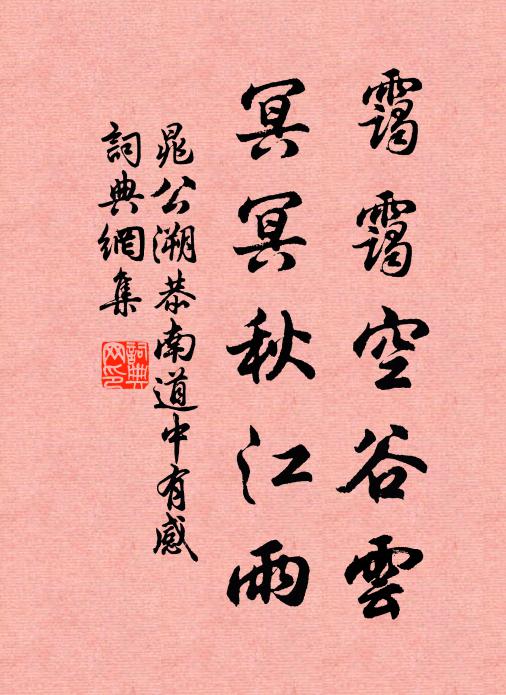 靄靄空谷雲
冥冥秋江雨
晁公溯恭南道中有感
詞典網集
詞典网印